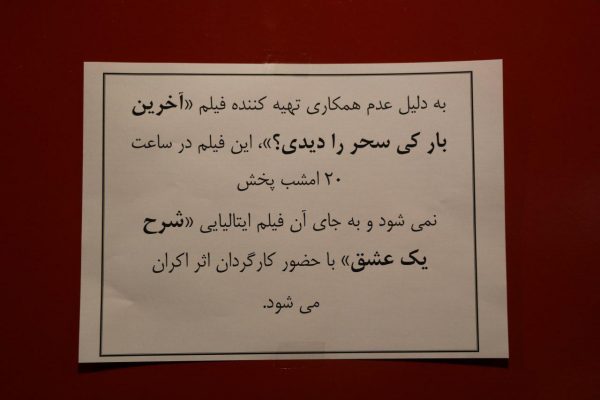 به دلیل عدم همکاری تهیه کننده فیلم «آخرین
بار کی سحر را دیدی؟»، این فیلم در ساعت
۲۰ امشب پخش
نمی شود و به جای آن فیلم ایتالیایی «شرح
یک عشق» با حضور کارگردان اثر اکران
می شود.